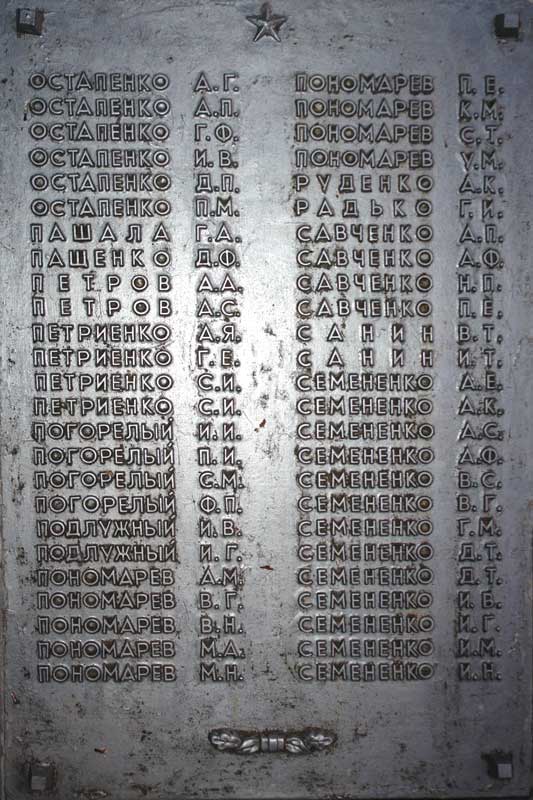 ОСТАПЕНКО А.Г.
ОСТАПЕНКО А.П.
ОСТАПЕНКО Г.Ф.
ОСТАПЕНКО И.В.
ОСТАПЕНКО Д.П.
ОСТАПЕНКО П.М.
ПАШАЛА Г.А.
ПАЩЕНКО Д.Ф.
ПЕТРОВ А.А.
ПЕТРОВ А.С.
ПЕТРИЕНКО А.Я.
ПЕТРИЕНКО Г.Е.
ПЕТРИЕНКО С.И.
ПЕТРИЕНКО С.И.
ПОГОРЕЛЫЙ И.И.
ПОГОРЕЛЫЙ П.И.
ПОГОРЕЛЫЙ С.М.
ПОГОРЕЛЫЙ Ф.П.
ПОДЛУЖНЫЙ И.В.
ПОДЛУЖНЫЙ И.Г.
ПОНОМАРЕВ А.М.
ПОНОМАРЕВ В.Г.
ПОНОМАРЕВ В.Н.
ПОНОМАРЕВ М.А.
ПОНОМАРЕВ М.Н.
ПОНОМАРЕВ П.Е.
ПОНОМАРЕВ К.М.
ПОНОМАРЕВ С.Т.
ПОНОМАРЕВ У.М.
РУДЕНКО А.К.
РАДЬКО Г.И.
САВЧЕНКО А.П.
САВЧЕНКО А.Ф.
САВЧЕНКО Н.П.
САВЧЕНКО П.Е.
САНИН В.Т.
САНИН И.Т.
СЕМЕНЕНКО А.Е.
СЕМЕНЕНКО А.К.
СЕМЕНЕНКО А.С.
СЕМЕНЕНКО А.Ф.
СЕМЕНЕНКО В.С.
СЕМЕНЕНКО В.Г.
СЕМЕНЕНКО Г.М.
СЕМЕНЕНКО Д.Т.
СЕМЕНЕНКО Д.Т.
СЕМЕНЕНКО И.В.
СЕМЕНЕНКО И.Г.
СЕМЕНЕНКО И.М.
СЕМЕНЕНКО И.Н.